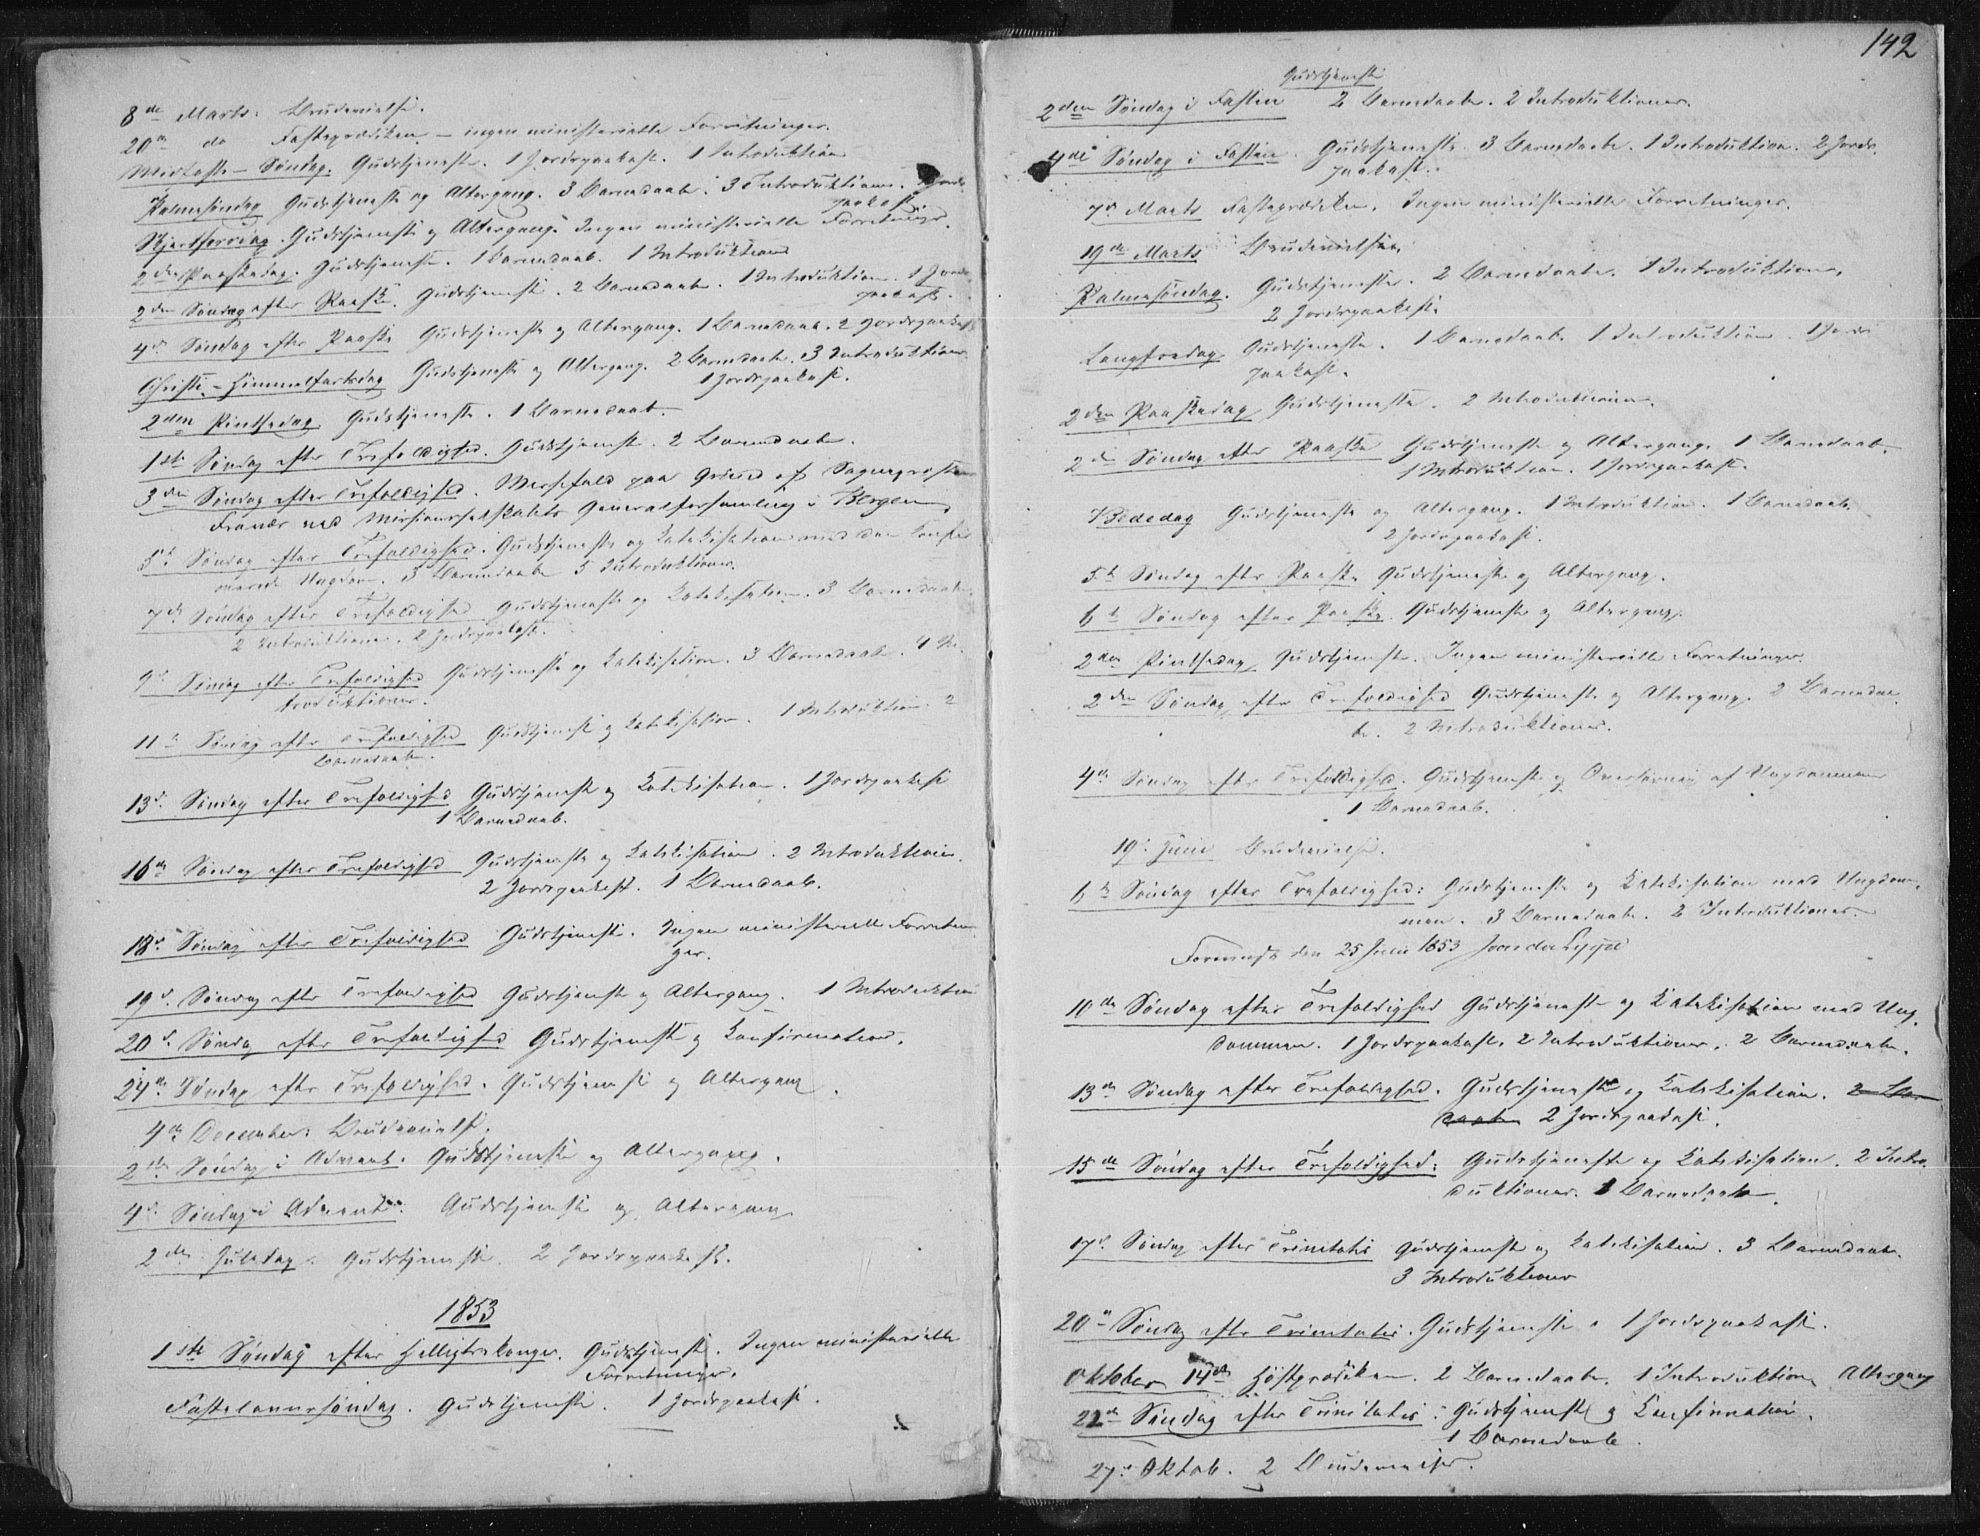 8de Marts. Brudevielse.
20de do Fasteprædiken – ingen ministerielle Forretninger.
Midfaste-Søndag. Gudstjeneste. 1 Jordspaakast. 1 Introduktion
Palmesøndag Gudstjeneste og Altergang. 3 Barnedaab. 3 Introduktioner. Jords-
paakast.
Skjertorsdag. Gudstjeneste og Altergang. Ingen ministerielle Forretninger.
2den Paaskedag. Gudstjeneste. 1 Barnedaab. 1 Introduktion
2den Søndag efter Paaske. Gudstjeneste. 2 Barnedaab. 1 Introduktion. 1 Jords-
paakast.
4de Søndag efter Paaske Gudstjeneste og Altergang. 1 Barnedaab. 2 Jordspaakast
Christi-Himmelfartsdag Gudstjeneste og Altergang. 2 Barnedaab. 3 Introduktioner
1 Jordspaakast.
2den Pintsedag. Gudstjeneste. 1 Barnedaab.
1ste Søndag efter Trefoldighed. Gudstjeneste. 2 Barnedaab.
3die Søndag efter Trefoldighed. Messefald paa Grund af Sognepræstens
Fravær ved Missionsselskabets Generalforsamling i Bergen
5te Søndag efter Trefoldighed. Gudstjeneste og Katekisation med den konfir-
merede Ungdom. 3 Barnedaab 5 Introduktioner.
7de Søndag efter Trefoldighed Gudstjeneste og Katekisation. 3 Barnedaab.
2 Introduktioner. 2 Jordspaakast.
9de Søndag efter Trefoldighed Gudstjeneste og Katekisation. 3 Barnedaab. 4 In-
troduktioner.
11te Søndag efter Trefoldighed Gudstjeneste og Katekisation. 1 Introduktion. 2
Barnedaab.
13de Søndag efter Trefoldighed Gudstjeneste og Katekisation. 1 Jordspaakast
1 Barnedaab.
16de Søndag efter Trefoldighed Gudstjeneste og Katekisation. 2 Introduktioner.
2 Jordspaakast. 1 Barnedaab.
18de Søndag efter Trefoldighed Gudstjeneste. Ingen ministerielle Forretnin-
ger.
19de Søndag efter Trefoldighed Gudstjeneste og Altergang. 1 Introduktion
20de Søndag efter Trefoldighed Gudstjeneste og Konfirmation.
24de Søndag efter Trefoldighed. Gudstjeneste og Altergang.
4de December: Brudevielse.
2den Søndag i Advent. Gudstjeneste og Altergang.
4de Søndag i Advent. Gudstjeneste og Altergang
2den Juledag. Gudstjeneste. 2 Jordspaakast.
1853
1ste Søndag efter Helligtrekonger. Gudstjeneste. Ingen ministerielle
Forretninger.
Fastelavnssøndag. Gudstjeneste. 1 Jordspaakast.
142
Gudstjeneste
2den Søndag i Fasten 2 Barnedaab. 2 Introduktioner.
4de Søndag i Fasten. Gudstjeneste. 3 Barnedaab. 1 Introduktion. 2 Jords-
paakast.
7de Marts Fasteprædiken. Ingen ministerielle Forretninger.
19de Marts Brudevielse.
Palmesøndag. Gudstjeneste. 2 Barnedaab. 1 Introduktion.
2 Jordspaakast.
Langfredag Gudstjeneste. 1 Barnedaab. 1 Introduktion. 1 Jords-
paakast.
2den Paaskedag Gudstjeneste. 2 Introduktioner.
2den Søndag efter Paaske Gudstjeneste og Altergang. 1 Barnedaab.
1 Introduktion. 1 Jordspaakast.
Bededag Gudstjeneste og Altergang. 1 Introduktion. 1 Barnedaab.
2 Jordspaakast.
5te Søndag efter Paaske Gudstjeneste og Altergang.
6te Søndag efter Paaske. Gudstjeneste og Altergang.
2den Pintsedag Gudstjeneste. Ingen ministerielle Forretninger.
2den Søndag efter Trefoldighed Gudstjeneste og Altergang. 2 Barnedaa-
be. 2 Introduktioner.
4de Søndag efter Trefoldighed. Gudstjeneste og Overhøring af Ungdommen
1 Barnedaab.
19de Juni Brudevielse.
6te Søndag efter Trefoldighed: Gudstjeneste og Katekisation med Ungdom-
men. 3 Barnedaab. 2 Introduktioner.
den 25 Juli 1853
10de Søndag efter Trefoldighed Gudstjeneste og Katekisation med Ung-
dommen. 1 Jordspaakast. 2 Introduktioner. 2 Barnedaab.
13de Søndag efter Trefoldighed. Gudstjeneste og Katekisation. 2 Bar-
daab 2 Jordspaakast.
15de Søndag efter Trefoldighed: Gudstjeneste og Katekisation. 2 Intro-
duktioner. 1 Barnedaab.
17de Søndag efter Trinitatis Gudstjeneste og Katekisation. 3 Barnedaab.
3 Introduktioner
20de Søndag efter Trinitatis. Gudstjeneste. 1 Jordspaakast.
Oktober 14de Høstprædiken. 2 Barnedaab. 1 Introduktion Altergang
22de Søndag efter Trinitatis. Gudstjeneste og Konfirmation.
1 Barnedaab.
27de Oktob. 2 Brudevielser.